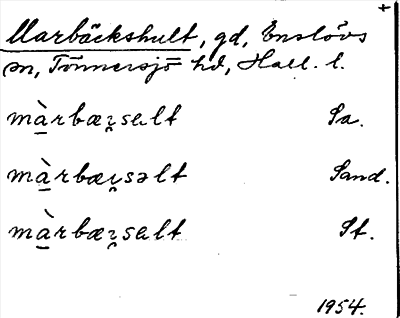 +
Marbäckshult, gd, Enslövs
sn, Tönnersjö hd, Hall. l.
màrbæʂsalt Sa.
màrbæʂsəlt Sand.
màrbæʂsalt St.
1954.